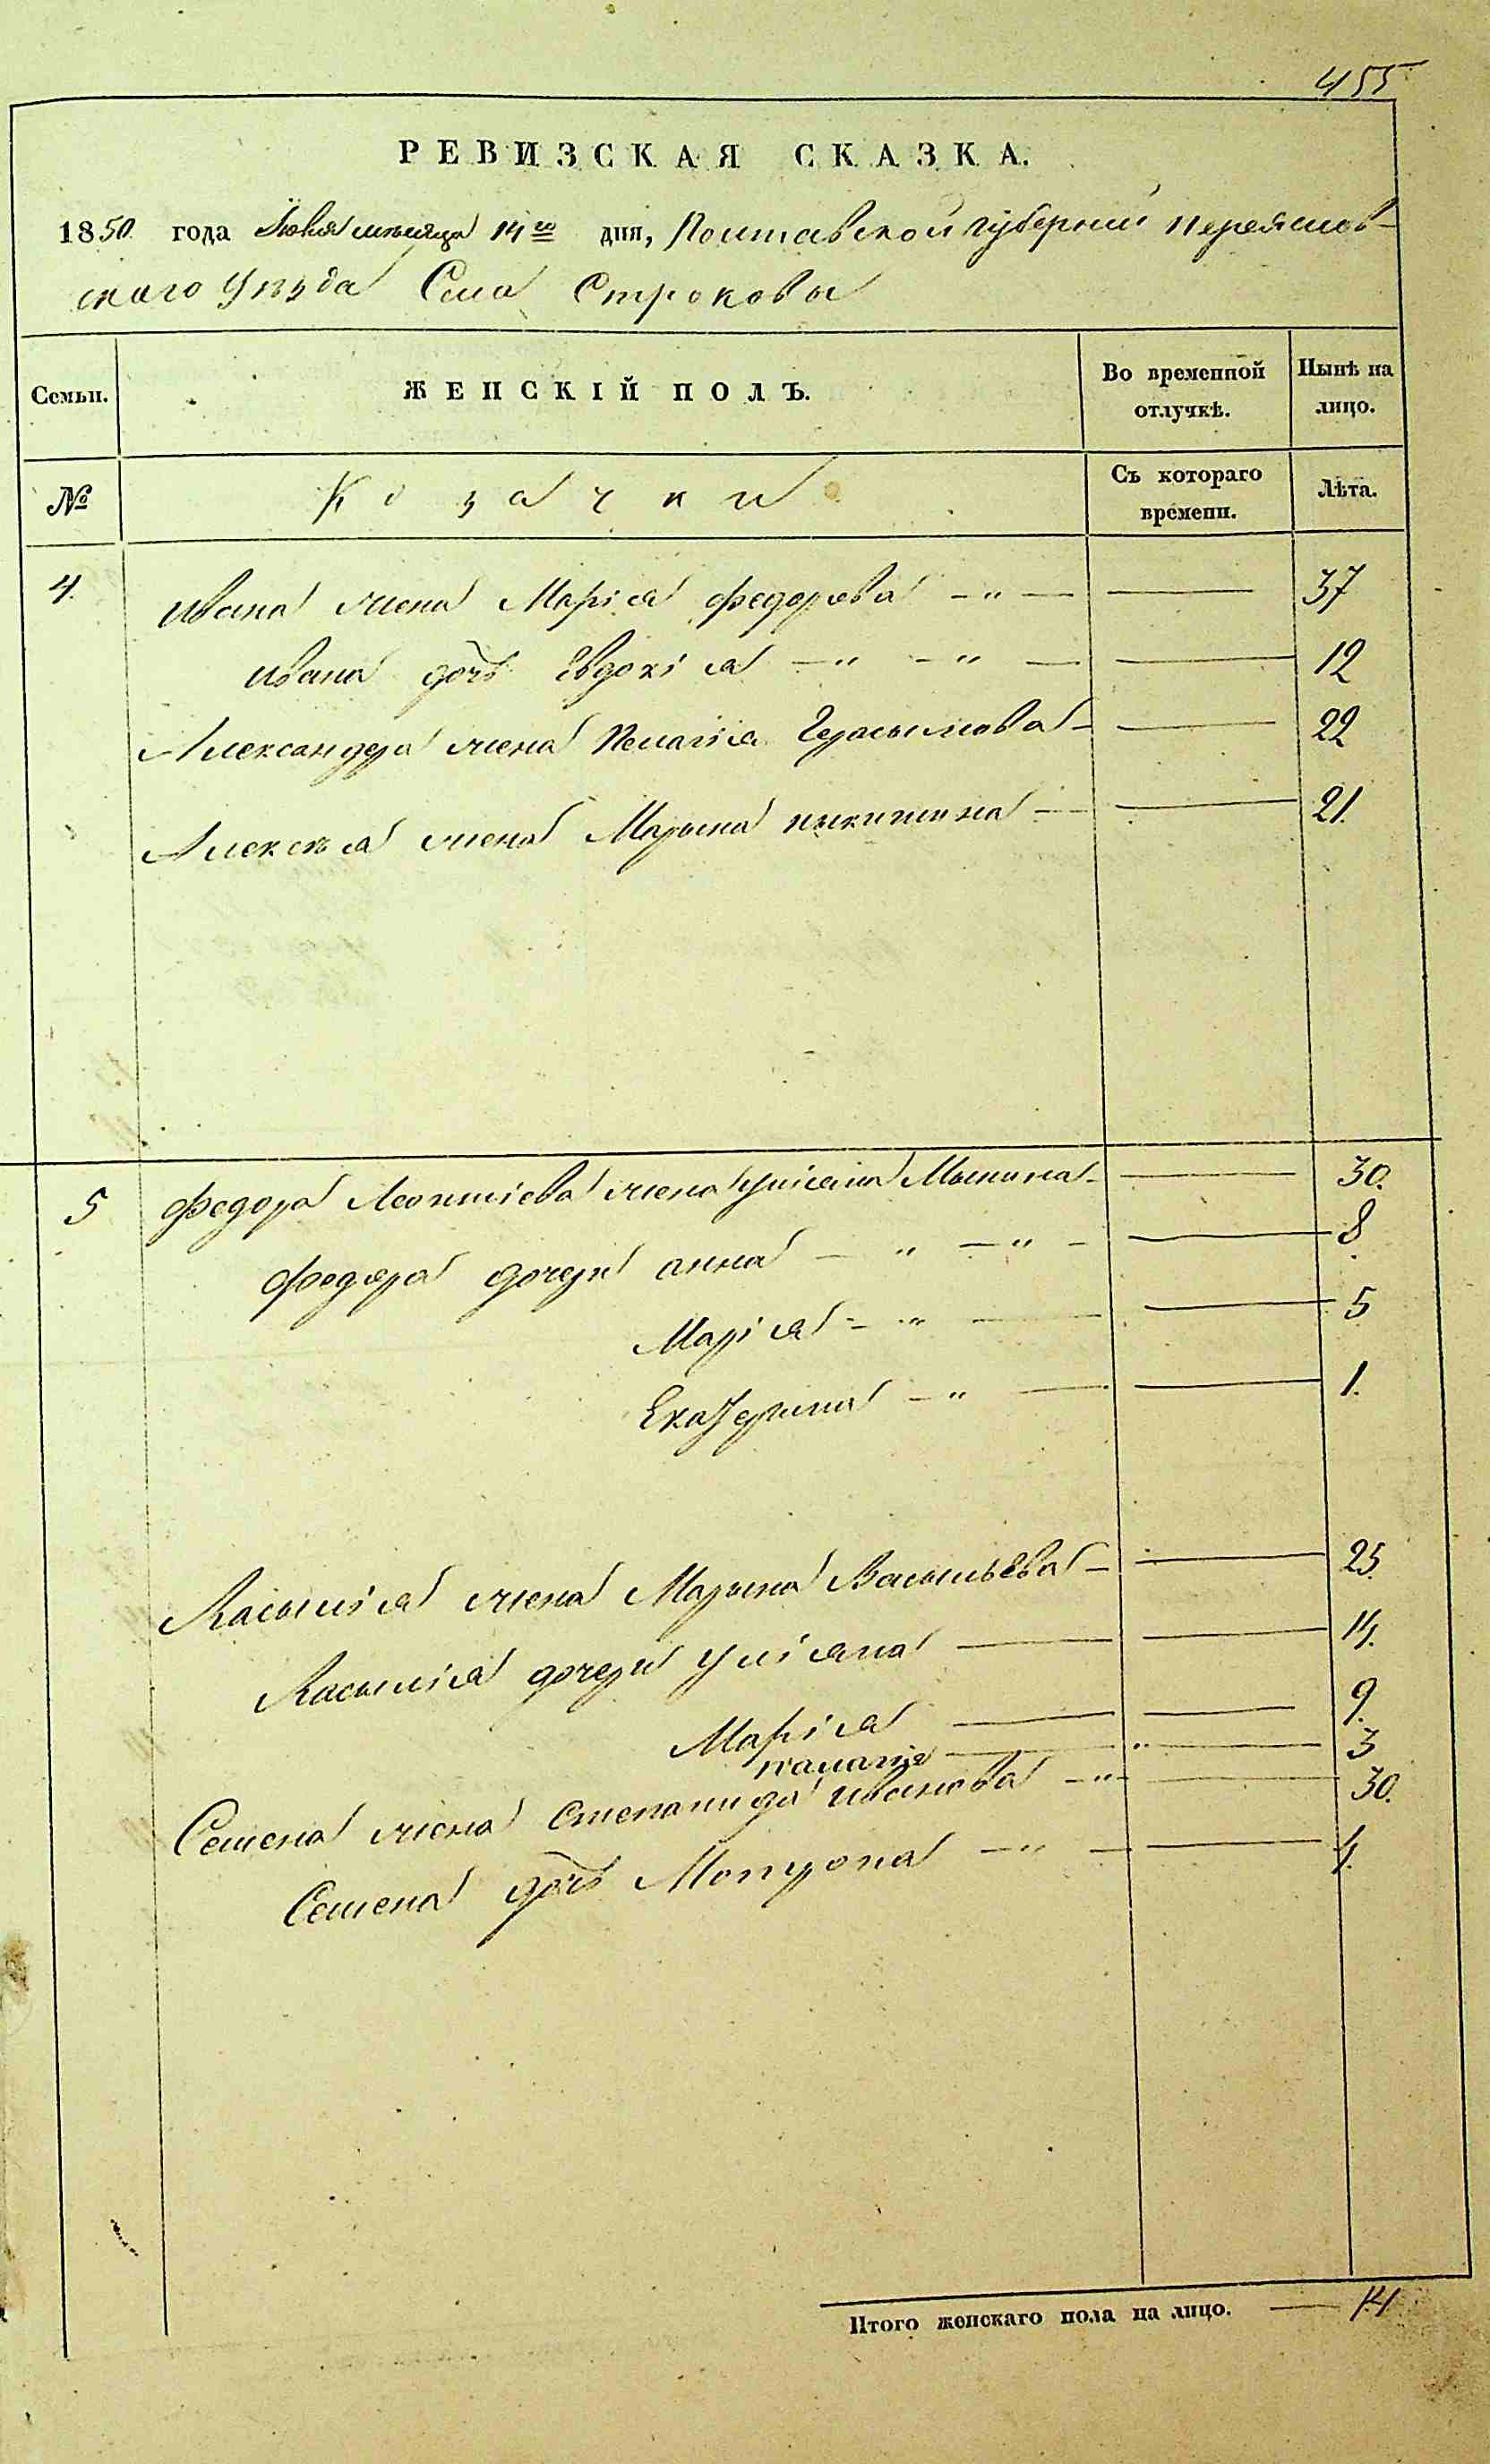 455
РЕВИЗСКАЯ СКАЗКА.
1850 года Іюня мѣсяца 14го дня, Полтавской губерніи Переяслов-
скаго Уѣзда Села Строковы
Семьи. ЖЕНСКІЙ ПОЛЪ. Во временной отлучкѣ. Нынѣ на лицо.
№ Козачки Съ котораго времени. Лѣта.
4. Ивана жена Марія Федорова — " — — 37
Ивана дочь Евдокія — " — " — — 12
Александра жена Пелагія Герасымова — — 22
Алексѣя жена Марына Никитина — — 21.
5 Федора Леонтіева жена Уліяна Мынина — — 30.
Федора дочери Анна — " — " — — 8
Марія — " — — 5
Екатерина — " — — 1.
жена Марына Васыльева — — 25.
дочери Уліяна — — 14.
Марія — — 9.
Палагія — — 3
Семена жена Степанида Иванова — " — — 30.
Семена дочь Мотрона — " — — 4.
Итого женскаго пола на лицо. — 14